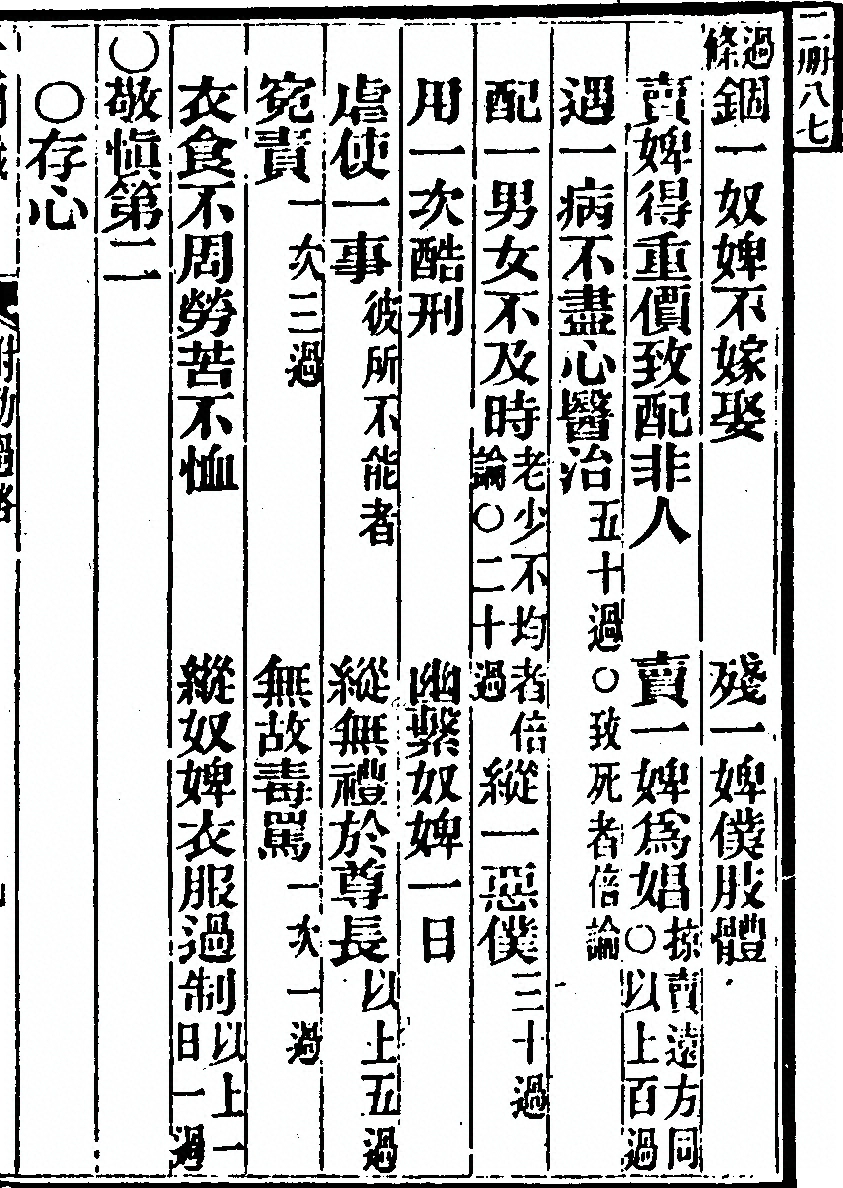 二册八七
過條 錮一奴婢不嫁娶 殘一婢僕肢體
賣婢得重價致配非人 賣一婢爲娼 掠賣遠方同○以上百過
遇一病不盡心醫治 五十過○致死者倍論
配一男女不及時 老少不均者倍論○二十過 縱一惡僕 三十過
用一次酷刑 幽繫奴婢一日
虐使一事 彼所不能者 縱無禮於尊長 以上五過
寃責 一次三過 無故毒罵 一次一過
衣食不周勞苦不恤 縱奴婢衣服過制 以上一日一過
○敬愼第二
○存心